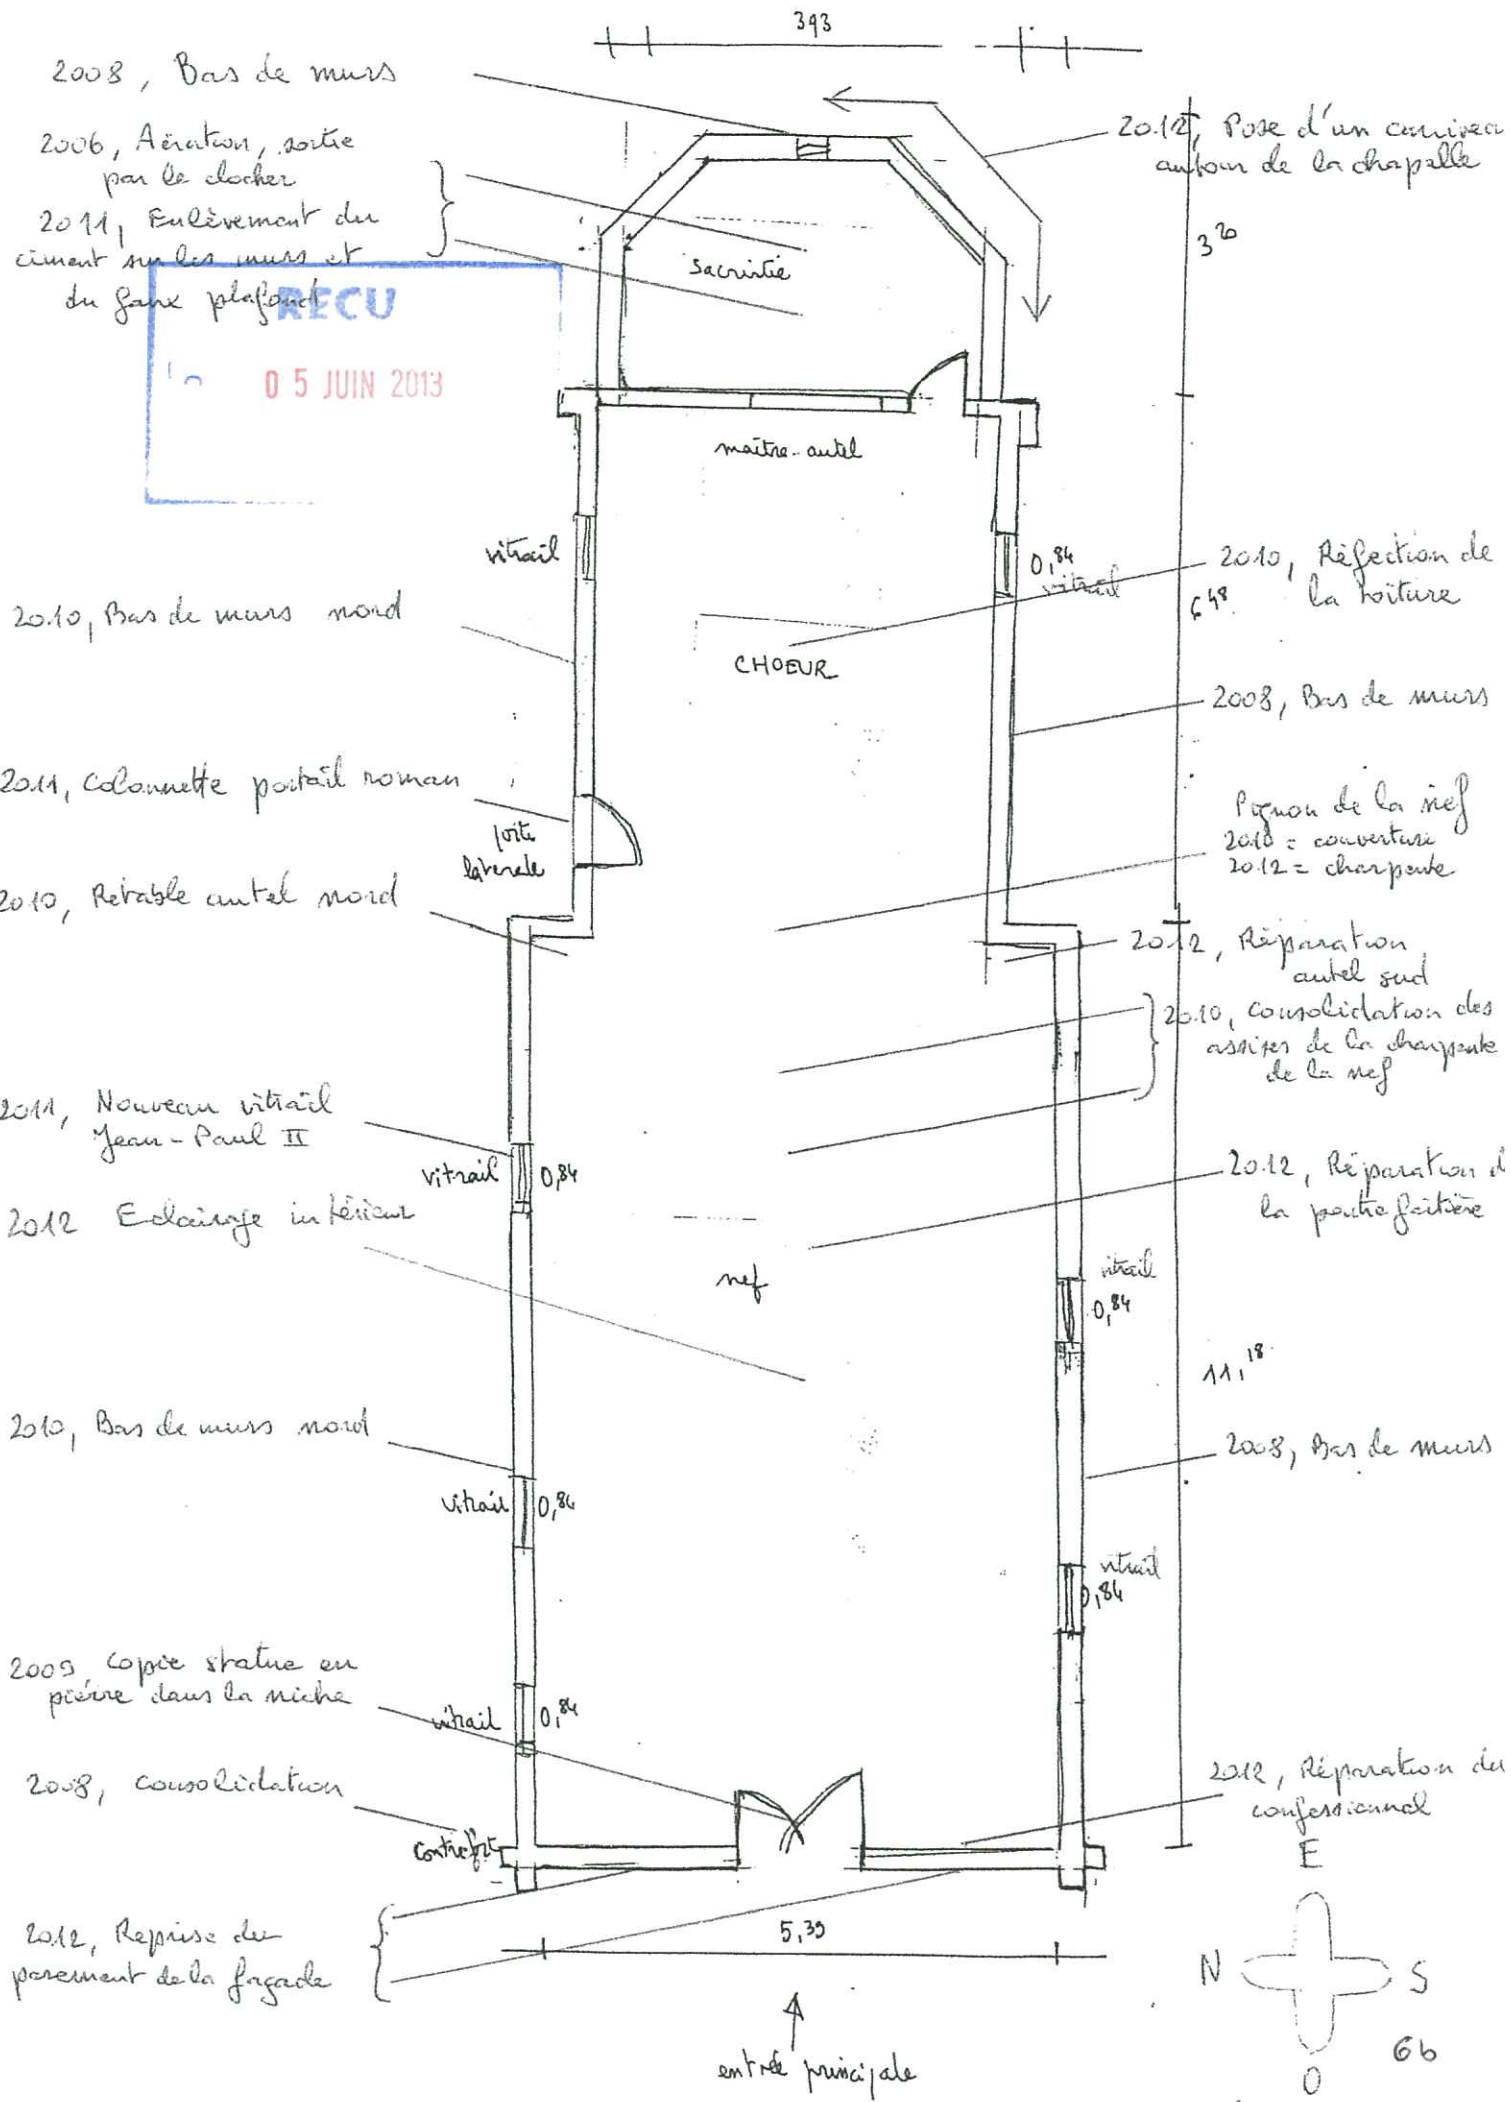 393
2008, Bas de murs
2006, Aération, sortie
par le clocher
2011, Enlèvement du
ciment sur les murs et
du faux plafond
RECU
05 JUIN 2013
2012, Pose d'un caniveau
autour de la chapelle
3 20
sacristie
maître-autel
vitrail
0,84
vitrail
2010, Réfection de
la toiture
6 48
2010, Bas de murs nord
CHOEUR
2008, Bas de murs
2011, Colonnette portail roman
porte
laterale
Pignon de la nef
2010 = couverture
2012 = charpente
2010, Retable autel nord
2012, Réparation
autel sud
2010, Consolidation des
assises de la charpente
de la nef
2011, Nouveau vitrail
Jean-Paul II
vitrail 0,84
2012, Réparation de
la poutre faîtière
2012 Eclairage intérieur
nef
vitrail
0,84
11,18
2010, Bas de murs nord
2008, Bas de murs
vitrail 0,84
vitrail
0,84
2009, Copie statue en
pierre dans la niche
vitrail 0,84
2008, Consolidation
contrefort
2012, Réparation du
confessionnal
2012, Reprise du
parement de la façade
5,39
E
N S
O
entrée principale
6b